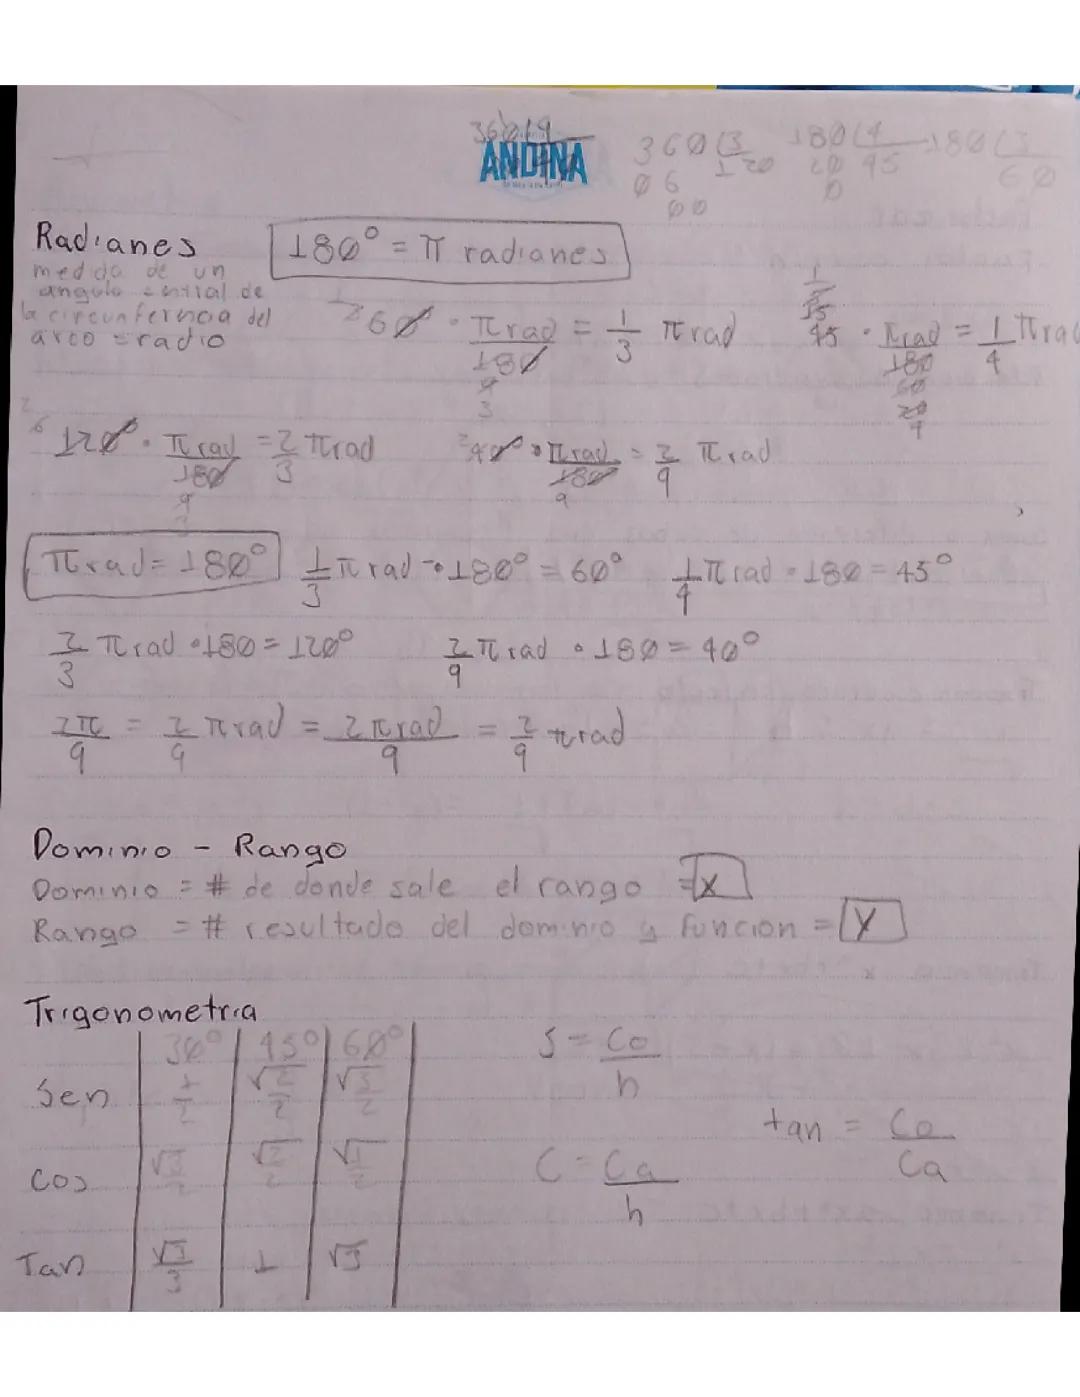 360 (9
ANDINA
360 (3
120
06
00
180 (4
20 45
0
180 (3
60
Radianes
180° = π radianes
medida de un
angulo central de
la circunferncia del
arco = radio
60° · πrad/180 = 1/3 πrad
9
3
45 · πrad/180 = 1/4 πrad
15
60
20
4
120° · πrad/180 = 2/3 πrad
9
40° · πrad/180 = 2/9 πrad
9
πrad = 180°
1/3 πrad · 180° = 60°
1/4 πrad · 180 = 45°
2/3 πrad · 180 = 120°
2/9 πrad · 180 = 40°
2π/9 = 2/9 πrad = 2πrad/9 = 2/9 πrad
Dominio - Rango
Dominio = # de donde sale el rango = x
Rango = # resultado del dominio y funcion = y
Trigonometria
30° 45° 60°
Sen 1/2 √2/2 √3/2
Cos √3/2 √2/2 √1/2
Tan √3/3 1 √3
S = Co/h
C = Ca/h
tan = Co/Ca